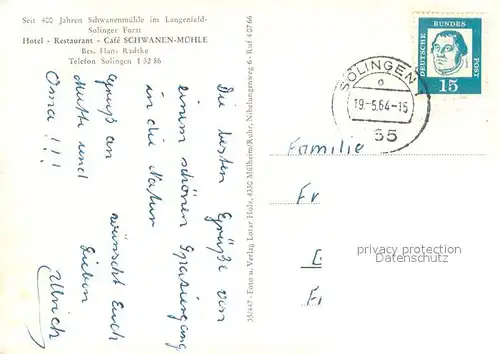 Seit 400 Jahren Schwanenmühle im Langenfeld-
Solinger Forst
Hotel - Restaurant - Café SCHWANEN-MÜHLE
Bes. Hans Radtke
Telefon Solingen 1 32 86
Die besten Grüße von
einem schönen Spaziergang
in die Natur
wünscht Euch
Lieben
Ullrich
Gruß an
Mutti und
Oma!!!
35/447 - Foto u. Verlag Lotar Holz, 4330 Mülheim/Ruhr, Nibelungenweg 6 - Ruf 40766
SOLINGEN 1
19.-5.64-15
65
DEUTSCHE
BUNDES
POST
15
Familie
Fr
privacy protection
ansichtskarten-center.de